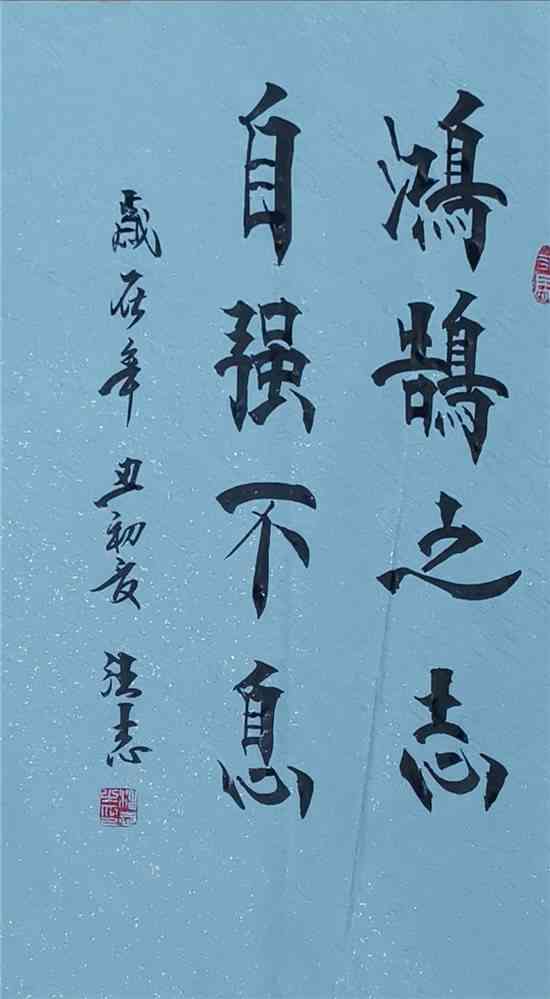 鸿鹄之志
自强不息
岁在辛丑初夏